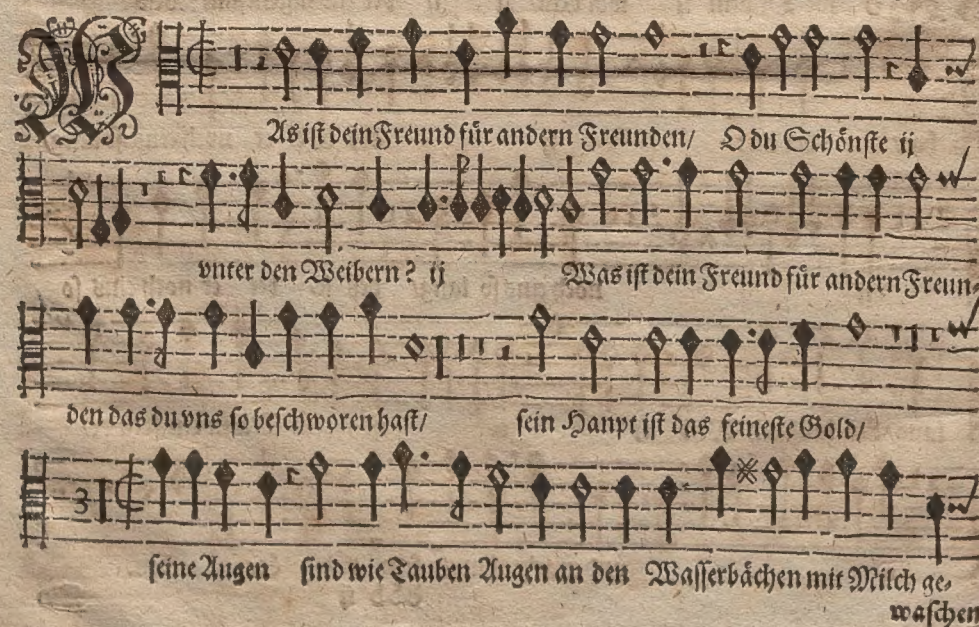 WAs ist dein Freund für andern Freunden/ O du Schönste ij
vnter den Weibern? ij Was ist dein Freund für andern Freun-
den das du vns so beschworen hast/ sein Haupt ist das feineste Gold/
3
seine Augen sind wie Tauben Augen an den Wasserbächen mit Milch ge-
waschen